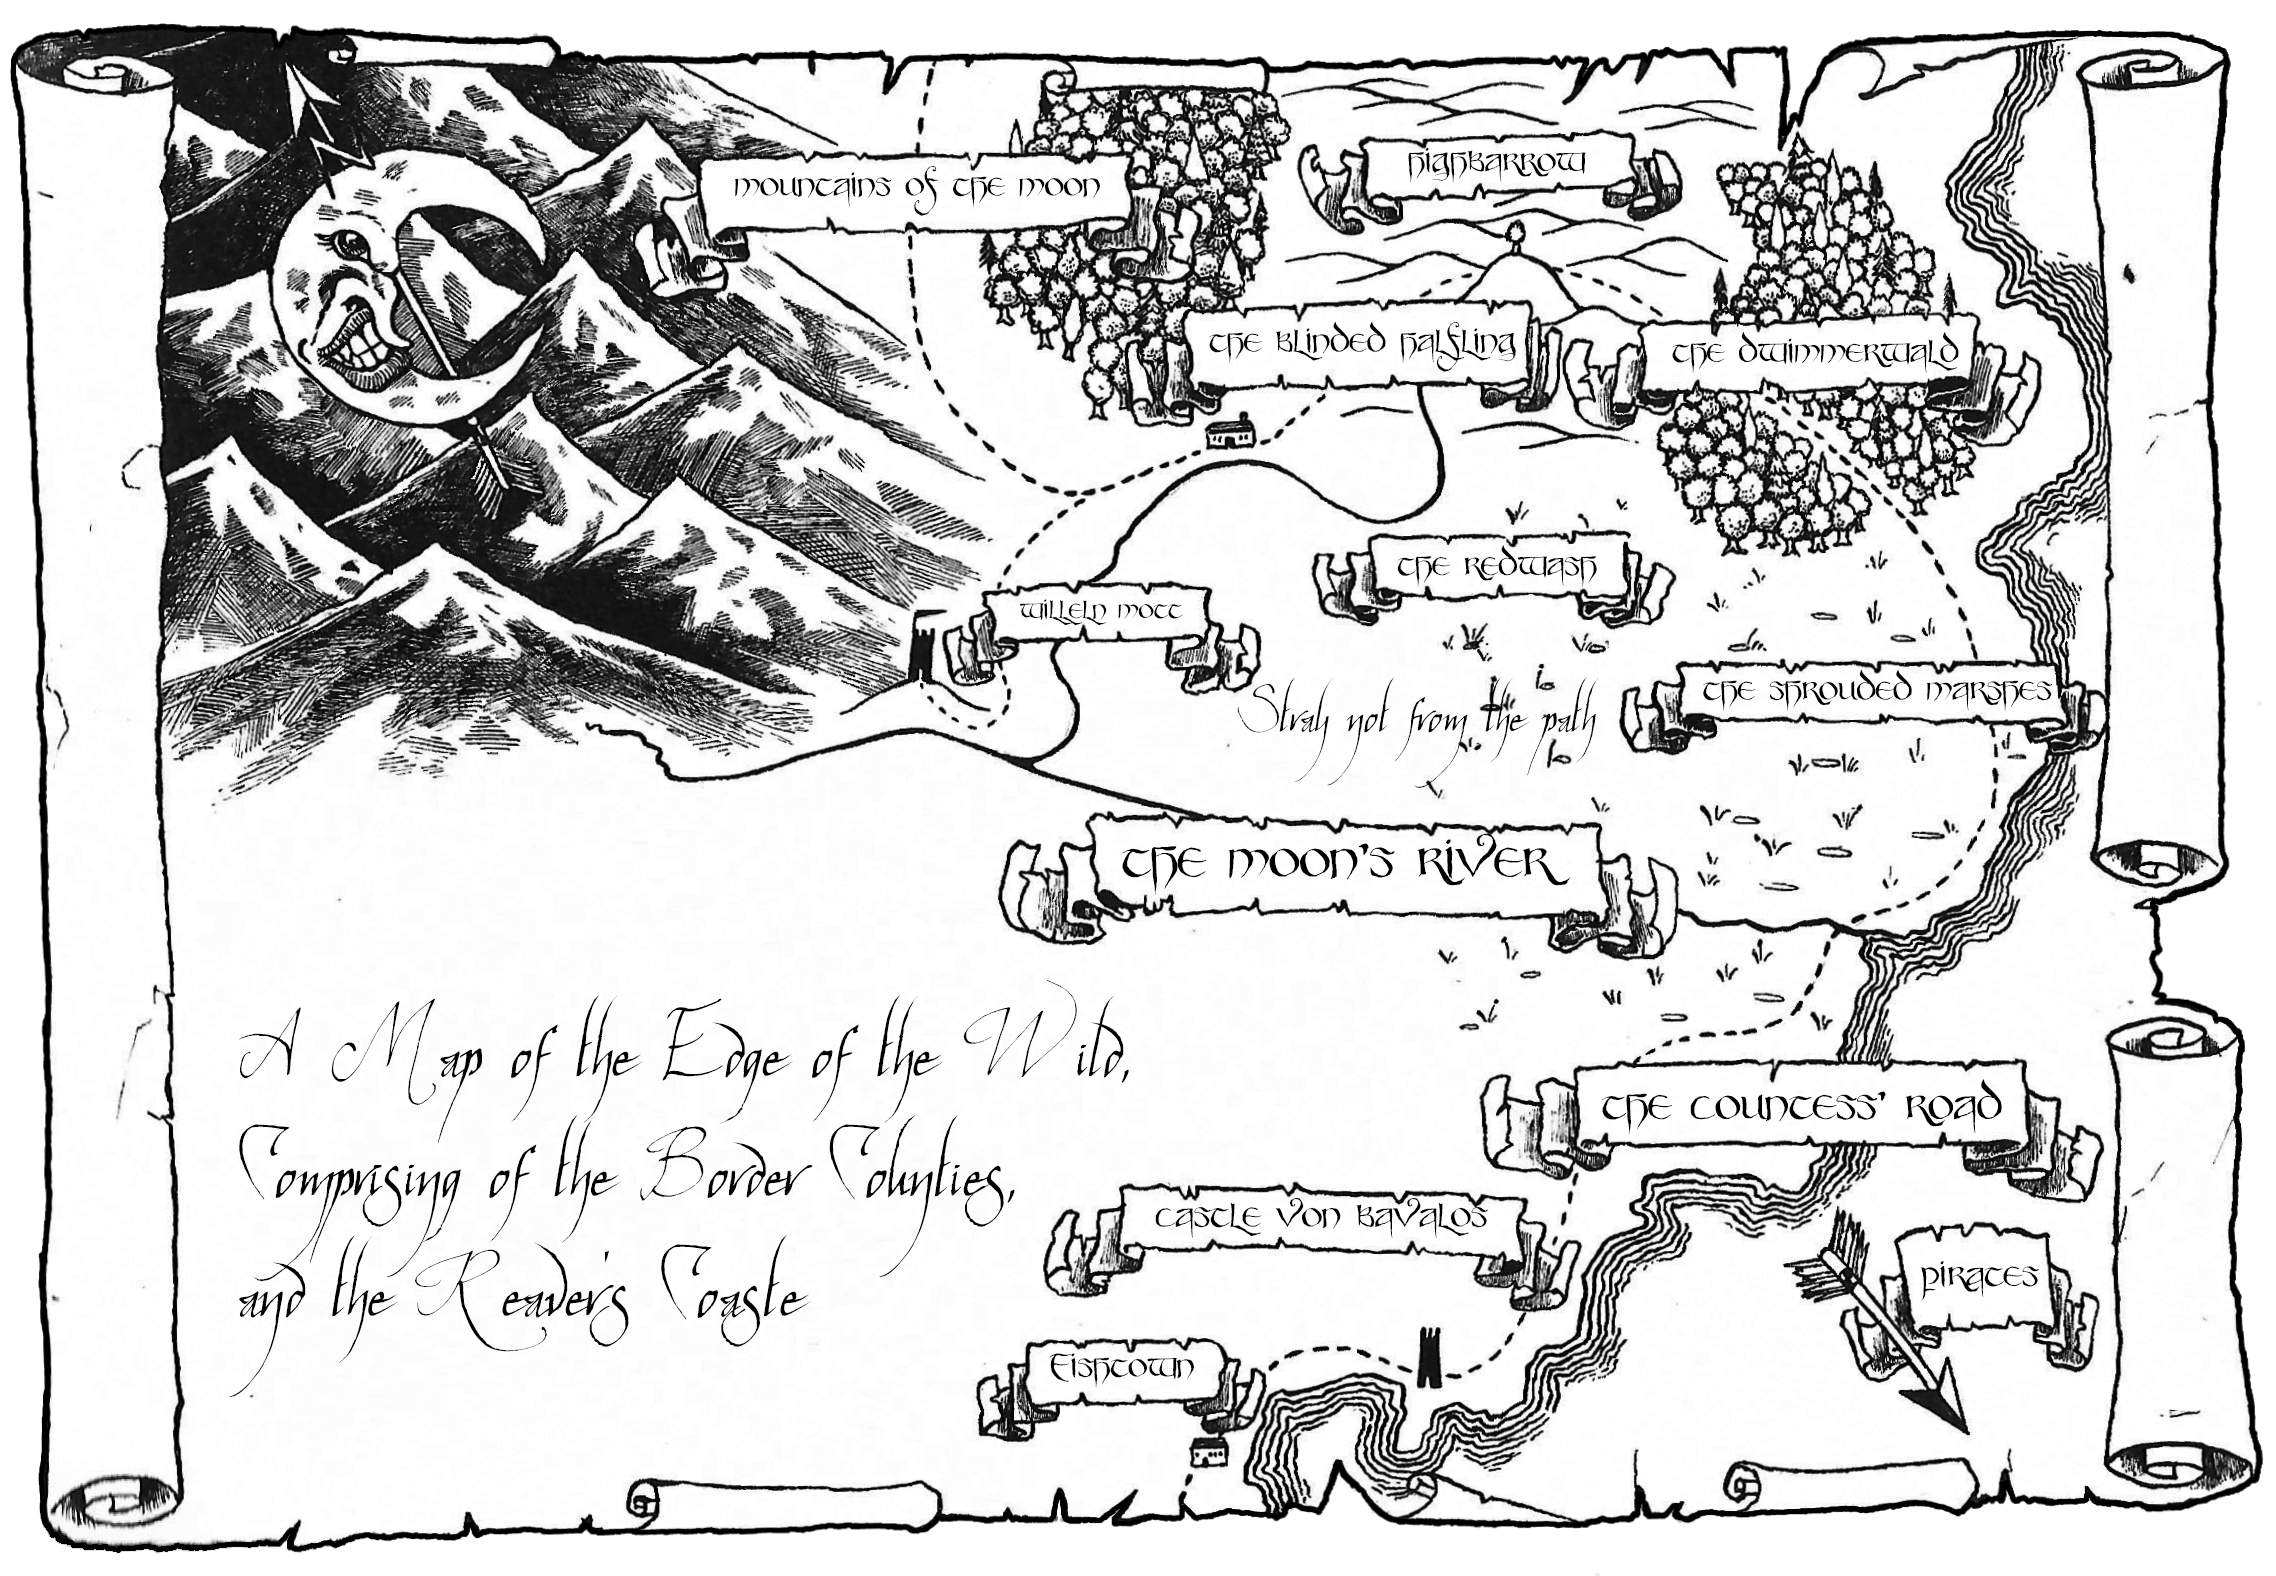 N
mountains of the moon
highbarrow
the blinded halfling
the dwimmerwald
the redwash
willeln mott
the shrouded marshes
Stray not from the path
the moon's river
A Map of the Edge of the Wild,
Comprising of the Border Counties,
and the Reaver's Coaste
the countess' road
castle von bavalos
pirates
fishtown